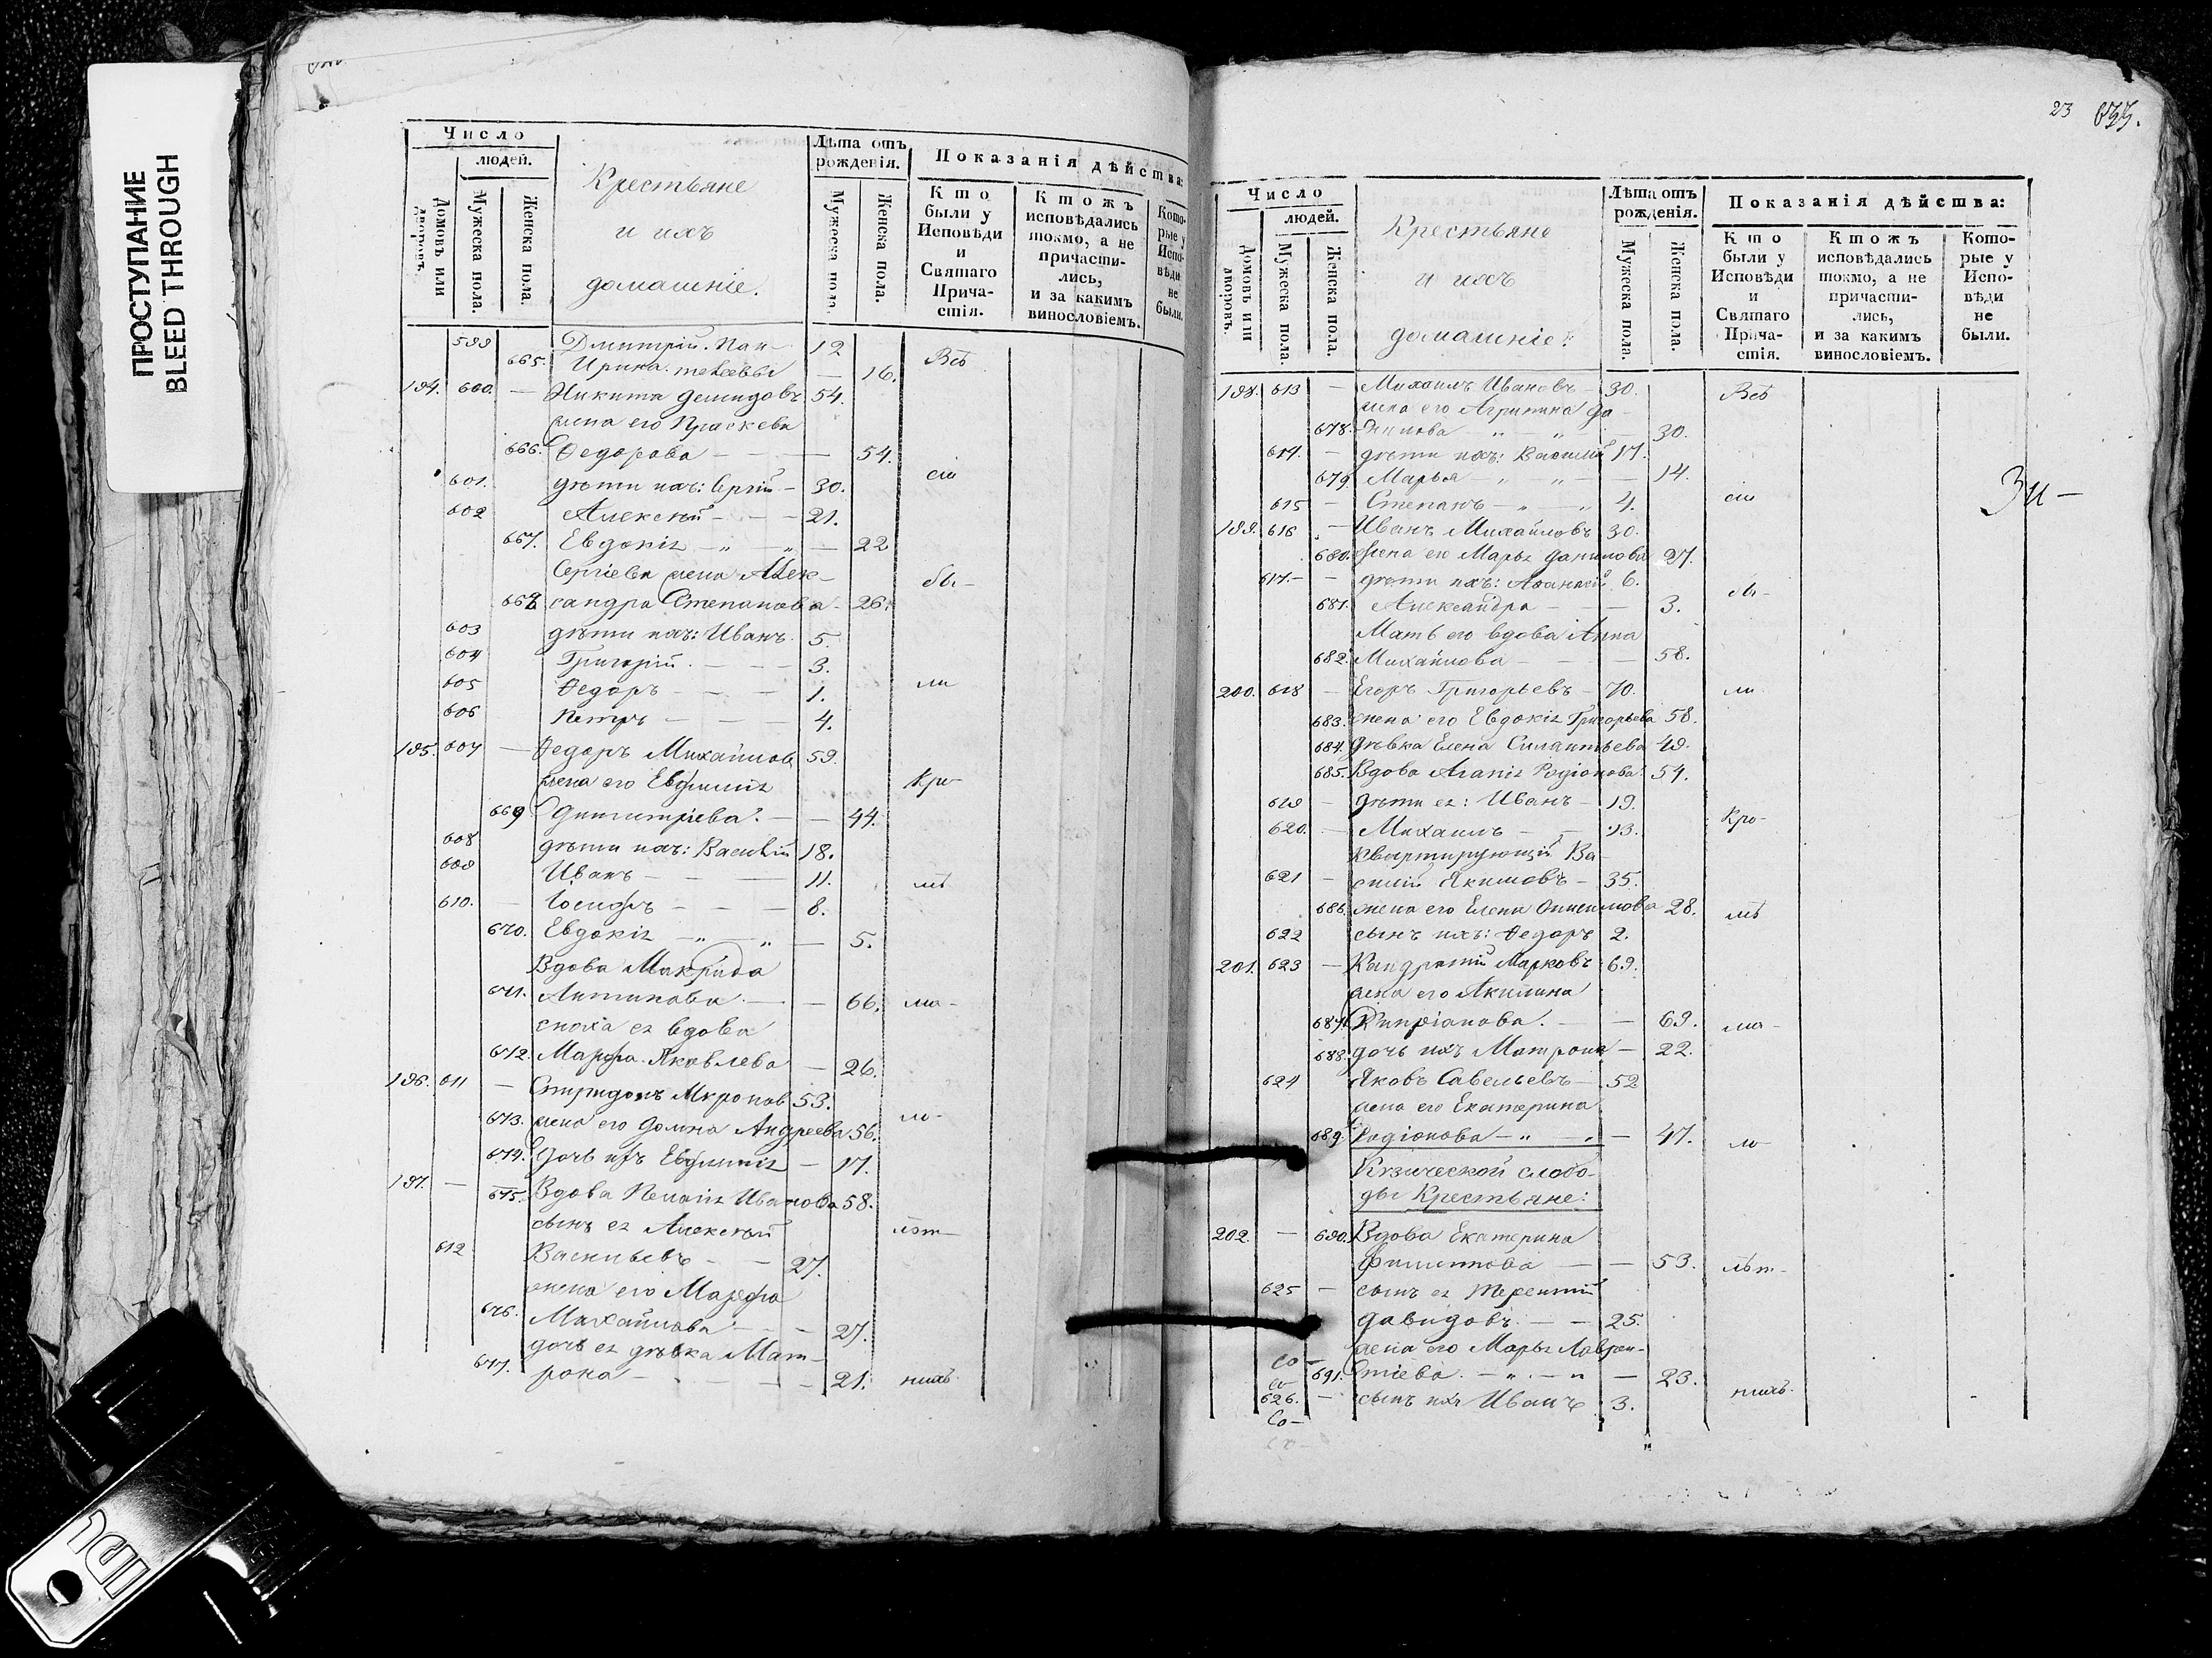 ПРОСТУПАНИЕ
BLEED THROUGH
Число
людей.
Домовъ или дворовъ.
Мужеска пола.
Женска пола.
Крестьяне
и ихъ
домашніе.
Лѣта отъ рожденія.
Мужеска пола.
Женска пола.
Показанія дѣйства:
Кто были у Исповѣди и Святаго Причастія.
Ктожъ исповѣдались токмо, а не причастились, и за какимъ винословіемъ.
Которые у Исповѣди не были.
599 Дмитрій. Пан- 12 Всѣ
665. Ирина. телеевы — 16.
194. 600. — Никита Демидовъ 54.
жена его Праскева
666. Федорова — — 54.
601. дѣти ихъ: Сергій — 30. сіи
602 Алексѣй — — 21.
667. Евдокія — „ — „ — 22
Сергіева жена Алек- бы-
668 сандра Степанова — 26.
603 дѣти ихъ: Иванъ 5.
604 Григорій — — 3.
605 Федоръ — — 1. ли
606 Петръ — — 4.
195. 607 — Федоръ Михайлов 59.
жена его Евфимія Кро-
669 Димитріева. — — 44.
608 дѣти ихъ: Василій 18.
609 Иванъ — — 11. мѣ
610. — Іосифъ — — 8.
670. Евдокія — „ — „ — 5.
Вдова Макрида
671. Антипова — — 66. ма-
сноха ея вдова
672. Марфа Яковлева — 26.
196. 611 — Спиридонъ Миронов 53.
673. жена его Домна Андреева 56. ло-
674. Дочь ихъ Евфимія — 17.
197. — 675. Вдова Пелагія Иванова 58.
сынъ ея Алексѣй лѣт-
612 Васильевъ — — 27.
жена его Марфа
676. Михайлова — — 27.
дочь ея дѣвка Мат-
677. рона — — — 21. нихъ
23 677.
Число
людей.
Домовъ или дворовъ.
Мужеска пола.
Женска пола.
Крестьяне
и ихъ
домашніе:
Лѣта отъ рожденія.
Мужеска пола.
Женска пола.
Показанія дѣйства:
Кто были у Исповѣди и Святаго Причастія.
Ктожъ исповѣдались токмо, а не причастились, и за какимъ винословіемъ.
Которые у Исповѣди не были.
198. 613 — Михаилъ Ивановъ — 30. Всѣ
жена его Агрипина Да-
678. нилова — „ — „ — 30.
614. — дѣти ихъ: Василій 17.
679. Марья — „ „ — 14.
615 — Степанъ — „ — „ 4. сіи
Зи —
199. 616 — Иванъ Михайловъ 30.
680. жена его Марья Данилова 27.
617. — — дѣти ихъ: Афанасій 6. бы-
681. Александра — — 3.
Мать его вдова Анна
682. Михайлова — — 58.
200. 618 — Егоръ Григорьевъ — 70. ли
683. жена его Евдокія Григорьева 58.
684. Дѣвка Елена Силантьева 49.
685. Вдова Агапія Родіонова. 54.
619 — дѣти ея: Иванъ — 19.
620. — Михаилъ — — 13. Кро-
Квартирующій Ва-
621 — силій Якимовъ — 35.
686. жена его Елена Онисимова 28. мѣ
622 сынъ ихъ: Федоръ 2.
201. 623 — Кандратій Марковъ 69.
жена его Акилина
687. Кипріанова. — — 69. ма-
688. дочь ихъ Матрона — 22.
624 Яковъ Савельевъ — 52
жена его Екатерина
689. Родіонова — „ — „ — 47. ло
Кизической слобо-
ды Крестьяне:
202. — 690. Вдова Екатерина
Филиппова — — 53. лѣт-
625 — сынъ ея Терентій
Давидовъ. — — 25.
жена его Марья Лаврен-
691. тіева. — „ — „ — 23.
626. — сынъ ихъ Иванъ 3. нихъ.
Со-